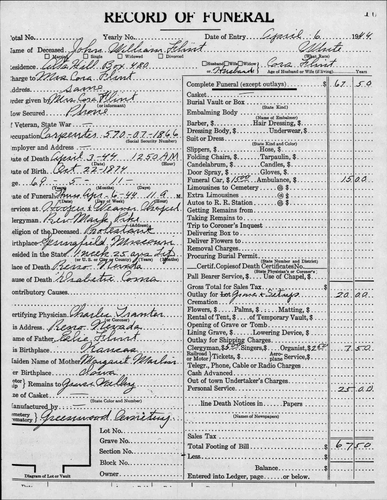 RECORD OF FUNERAL
Total No. Yearly No. Date of Entry April 6 1944
Name of Deceased John William Flint White
Married Single Widowed Divorced (What Race)
Residence Box 480 Husband, Wife, Widow or Husband Cora Flint
Charge to Mrs Cora Flint Age of Husband or Wife (if living) Years
Address Same
Order given by Mrs Cora Flint
How Secured Phone
If Veteran, State War
Occupation Carpenter 570-07-1866
(Social Security Number)
Employer and Address
Date of Death April 3-44 12 50 AM
Date of Birth Oct 22-1874
Age 69 5 11
Date of Funeral Apr 6-44 11 a
Services at Chapel
Clergyman Rev Mark
Religion of Deceased Protestant
Birthplace Missouri
Resided in the State
Place of Death Reno Nevada
Cause of Death Diabetic Coma
Contributory Causes
Certifying Physician Charles
His Address Reno Nevada
Name of Father Flint
His Birthplace Kansas
Maiden Name of Mother Margaret
Her Birthplace Iowa
Remains to Grass Valley
Size of Casket
(State Color and Number)
Manufactured by
Cemetery Greenwood Cemetery
Crematory
Lot No.
Grave No.
Section No.
Block No.
Owner
Diagram of Lot or Vault
Complete Funeral (except outlays) $ 67 50
Casket
Burial Vault or Box
(State Kind)
Embalming Body
(State Number)
Barber, $ Hair Dressing, $
Dressing Body, $ Underwear, $
Suit or Dress
(State Kind and Color)
Slippers, $ Hose, $
Folding Chairs, $ Tarpaulin, $
Candelabrum, $ Candles, $
Door Spray, $ Gloves, $
Funeral Car, $ 15.00 Ambulance, $ 15 00
Limousines to Cemetery @ $
Extra Limousines @ $
Autos to R. R. Station @ $
Getting Remains from
Taking Remains to
Trip to Coroner's Inquest
Delivering Box to
Deliver Flowers to
Removal Charges
Procuring Burial Permit
(State Number and District)
Certif. Copies of Death Certificates No.
(State No.)
Pall Bearer Service, $ Use of Chapel, $
Gross Total for Sales Tax
Outlay for Lot Grave & Setups 20 00
Cremation
Flowers, $ Palms, $ Matting, $
Rental of Tent, $ of Temporary Vault, $
Opening of Grave or Tomb
Lining Grave, $ Lowering Device, $
Outlay for Shipping Charges
Clergyman, $ 5.00 Singers, $ Organist, $ 2.50 7 50
Railroad or Motor Tickets, $ Aeroplane Service, $
Telegr., Phone, Cable or Radio Charges
Cash Advanced
Out of town Undertaker's Charges
Personal Service 25 00
line Death Notices in Papers
(Names of Newspapers)
Sales Tax
Total Footing of Bill $ 67 50
Less
Balance
Entered into Ledger, page or below.